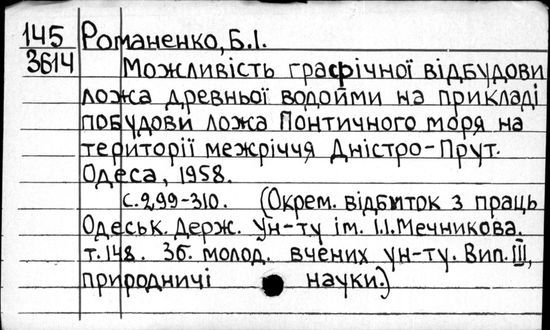 145
3614
Романенко, Б.І.
Можливість графічної відбудови
ложа древньої водойми на прикладі
побудови ложа Понтичного моря на
території межріччя Дністро-Прут.
Одеса, 1958.
с.299-310. (Окрем. відбиток з праць
Одеськ. Держ. Ун-ту ім. І.І.Мечникова.
т.148. Зб. молод. вчених ун-ту. Вип. III,
природничі науки.)